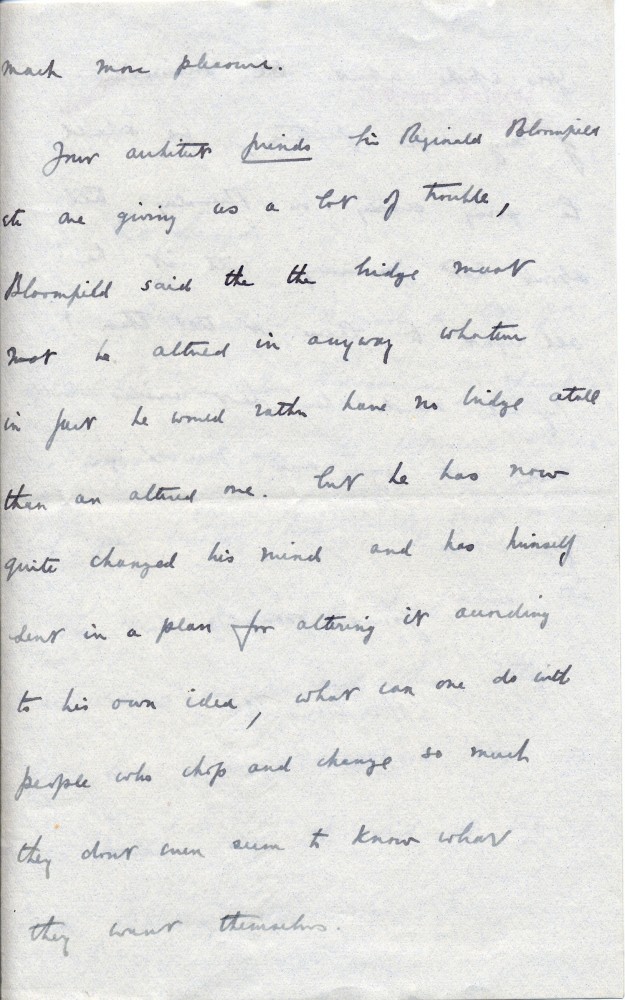 much more pleasure.
Your architect friends Sir Reginald Bloomfield
etc are giving us a lot of trouble,
Bloomfield said the the bridge must
not be altered in anyway whatever
in fact he would rather have no bridge atall
than an altered one. but he has now
quite changed his mind and has himself
sent in a plan for altering it according
to his own idea, what can one do with
people who chop and change so much
they dont even seem to know what
they want themselves.